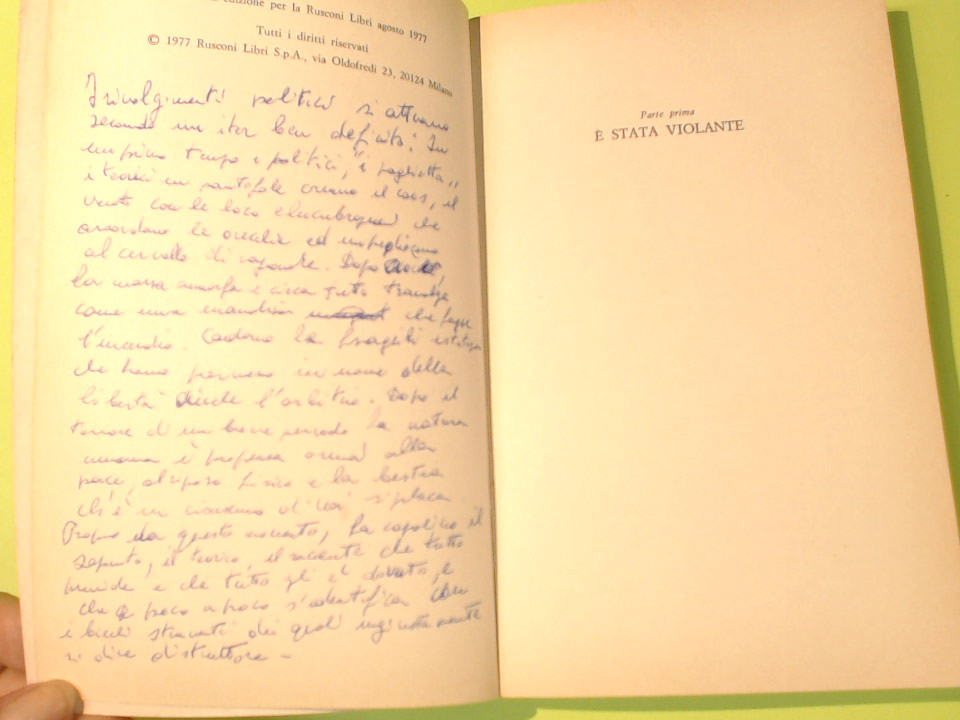 edizione per la Rusconi Libri agosto 1977
Tutti i diritti riservati
© 1977 Rusconi Libri S.p.A., via Oldofredi 23, 20124 Milano
I rivolgimenti politici si attuano
secondo un iter ben definito: In
un primo tempo i politici, "i paglietta"
i teorici in pantofole creano il caos, il
vuoto con le loro elucubrazioni che
assordano le orecchie ed impediscono
al cervello di
Dopo
la massa amorfa e cieca tutto travolge
come una mandria che fugge
l'incendio. Cadono le fragili
che hanno permesso in nome della
libertà anche l'arbitrio. Dopo il
terrore di un breve periodo la natura
umana è propensa ormai alla
pace, al riposo fisico e la bestia
ch'è in ciascuno di noi si placa
Proprio da questo momento, fa capolino il
saputo, il teorico, il saccente che tutto
prende e che tutto gli è dovuto, e
che poco a poco s'identifica con
i biechi sfruttati dei quali ingiustamente
si dice distruttore -
Parte prima
È STATA VIOLANTE